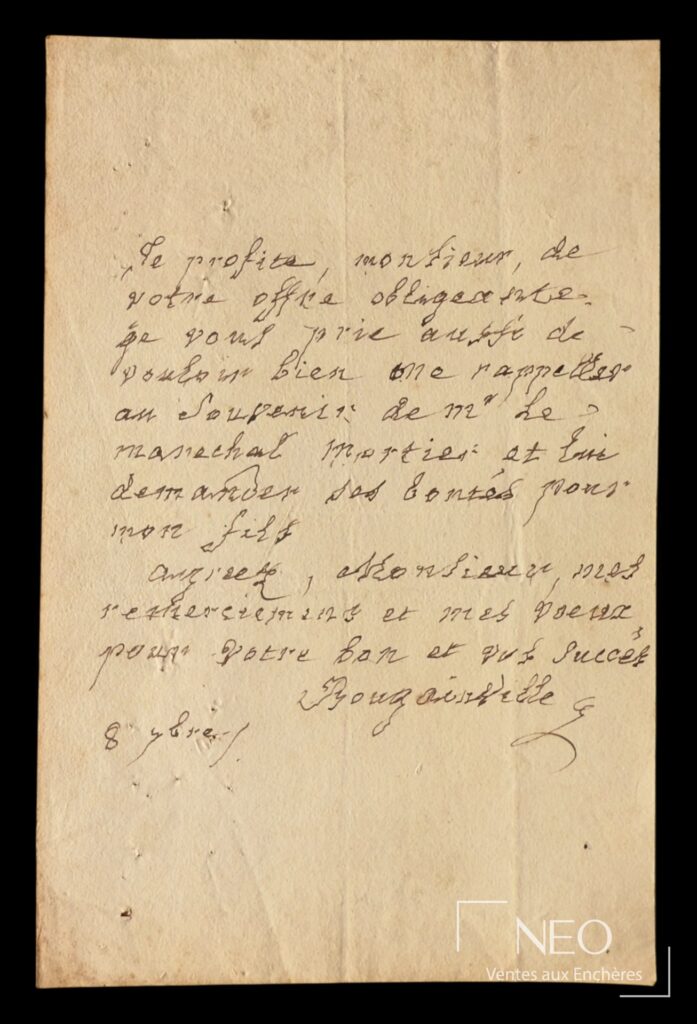 Je profite, monsieur, de
votre offre obligeante.
je vous prie aussi de
vouloir bien me rappeller
au Souvenir de mr Le
marechal mortier et lui
demander ses bontés pour
mon fils
agréez, Monsieur, mes
remerciements et mes voeux
pour votre bon et vos succès
Bougainville
8 ybre
NEO
Ventes aux Enchères